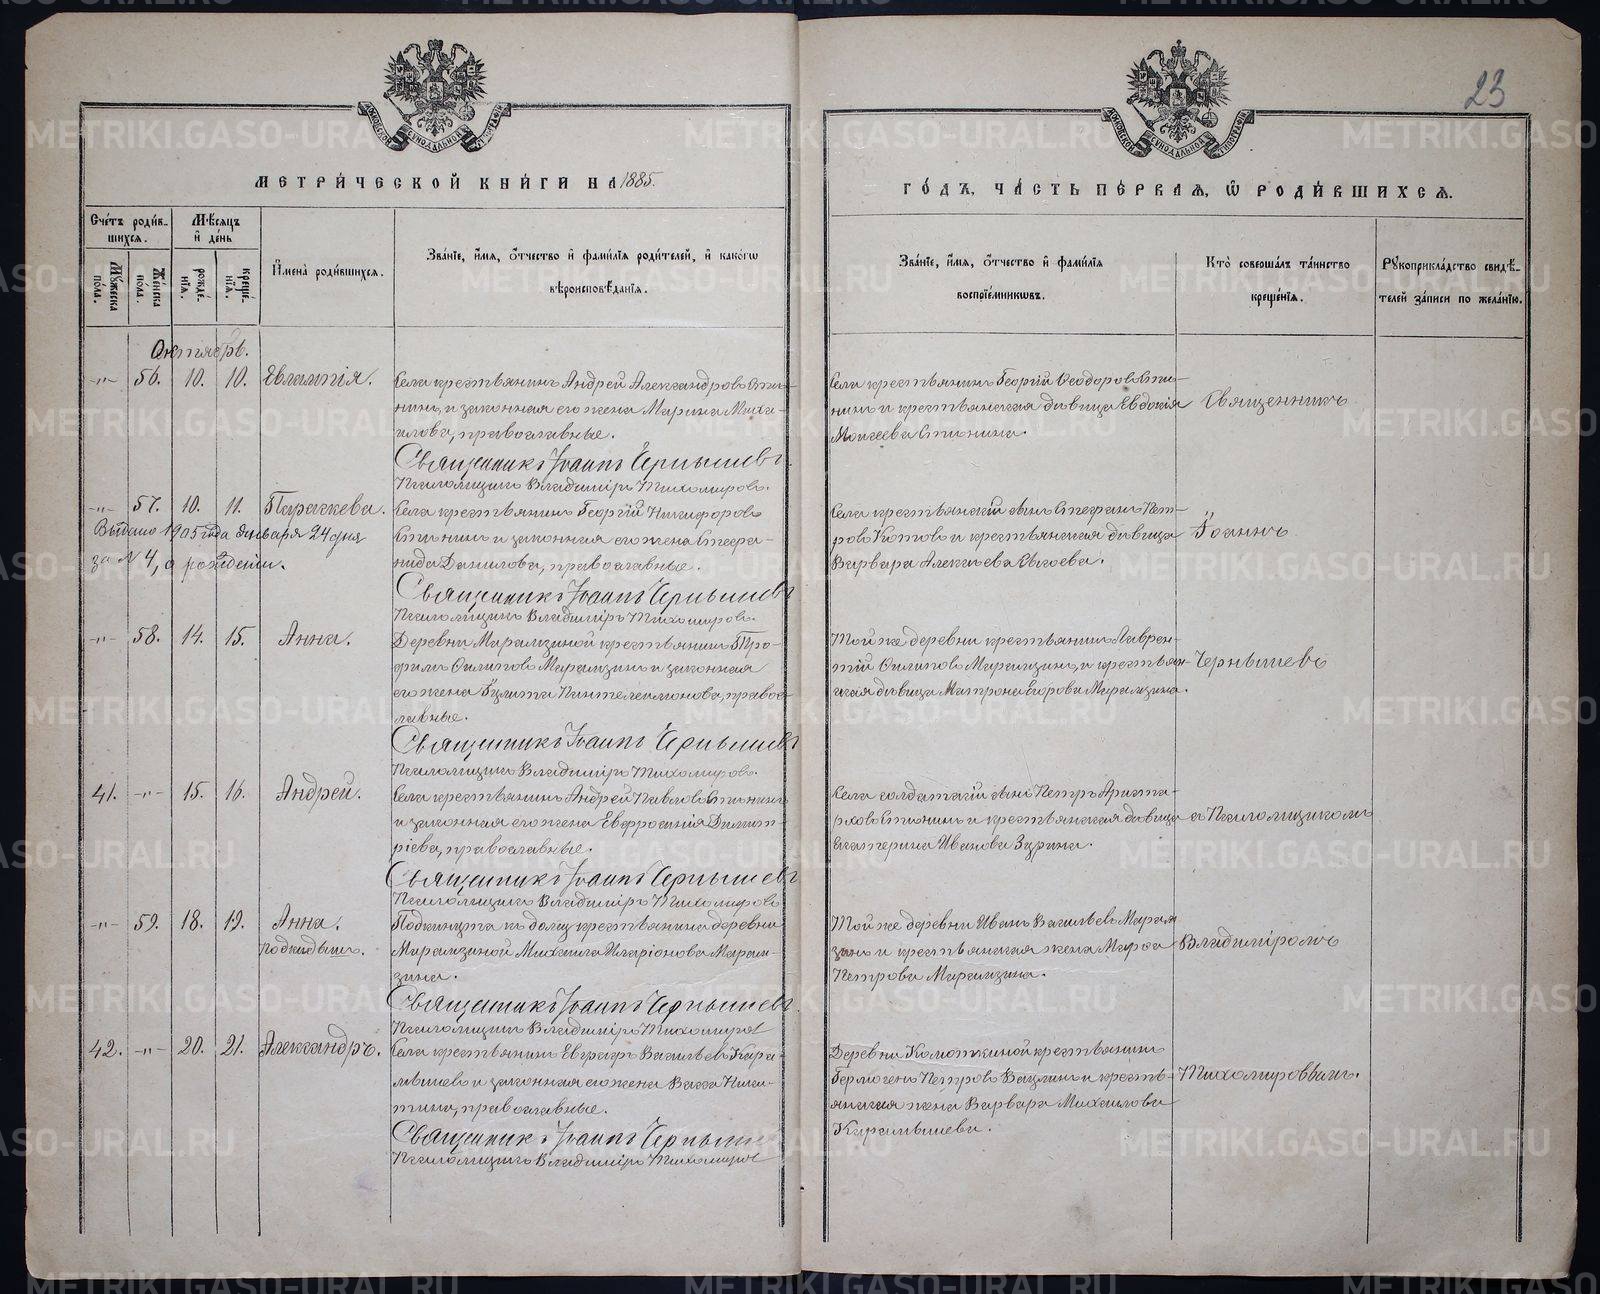 23
МЕТРИЧЕСКОЙ КНИГИ НА 1885.
ГОДЪ, ЧАСТЬ ПЕРВАЯ, Ѡ РОДИВШИХСЯ.
Счетъ родившихся.
Мѣсяцъ и день
Мужеска пола.
Женска пола.
рожденія.
крещенія.
Имена родившихся.
Званіе, имя, отчество и фамилія родителей, и какогѡ
вѣроисповѣданія.
Званіе, имя, отчество и фамилія
воспріемниковъ.
Кто совершалъ таинство
крещенія.
Рукоприкладство свидѣ-
телей записи по желанію.
Октябрь.
-"- 56. 10. 10. Евлампія.
Села крестьянинъ Андрей Александровъ
и законная его жена Марина Миха-
илова, православные.
Священникъ Іоаннъ Чернышевъ
Псаломщикъ Владиміръ Тихомировъ.
Села крестьянинъ Георгій Ѳеодоровъ
и крестьянская дѣвица Евдокія
Моисеева
Священникъ
-"- 57. 10. 11. Параскева.
Выдано 1905 года Января 24 дня
за № 4, о рожденіи.
Села крестьянинъ Георгій Никифоровъ
и законная его жена Стефа-
нида Данилова, православные.
Священникъ Іоаннъ Чернышевъ
Псаломщикъ Владиміръ Тихомировъ.
Села крестьянскій сынъ Стефанъ Пет-
ровъ Котовъ и крестьянская дѣвица
Варвара Алексѣева
Іоаннъ
-"- 58. 14. 15. Анна.
Деревни Марамзиной крестьянинъ Тро-
фимъ Филиповъ Марамзинъ и законная
его жена Пантелеимонова, право-
славные.
Священникъ Іоаннъ Чернышевъ
Псаломщикъ Владиміръ Тихомировъ.
Той же деревни крестьянинъ Лаврен-
тій Филиповъ Марамзинъ, и крестьян-
ская дѣвица Матрона Егорова Марамзина.
Чернышевъ
41. -"- 15. 16. Андрей.
Села крестьянинъ Андрей Павловъ
и законная его жена Евфросинія Димит-
ріева, православные.
Священникъ Іоаннъ Чернышевъ
Псаломщикъ Владиміръ Тихомировъ
Села солдатскій сынъ Петръ Ариста-
рховъ и крестьянская дѣвица
Екатерина Иванова Зырина.
съ Псаломщикомъ
-"- 59. 18. 19. Анна.
подкидышъ.
Подкинута къ дому крестьянина деревни
Марамзиной Михаила Иларіонова Марам-
зина.
Священникъ Іоаннъ Чернышевъ
Псаломщикъ Владиміръ Тихомировъ
Той же деревни Иванъ Васильевъ Марам
зинъ и крестьянская жена Марѳа
Петрова Марамзина.
Владиміромъ
42. -"- 20. 21. Александръ.
Села крестьянинъ Евграфъ Васильевъ Кара-
мышевъ и законная его жена Васса Ники-
тина, православные.
Священникъ Іоаннъ Чернышевъ
Псаломщикъ Владиміръ Тихомировъ
Деревни крестьянинъ
Гермогенъ Петровъ и кресть-
янская жена Варвара Михаилова
Карамышева.
Тихомировымъ.
METRIKI.GASO-URAL.RU